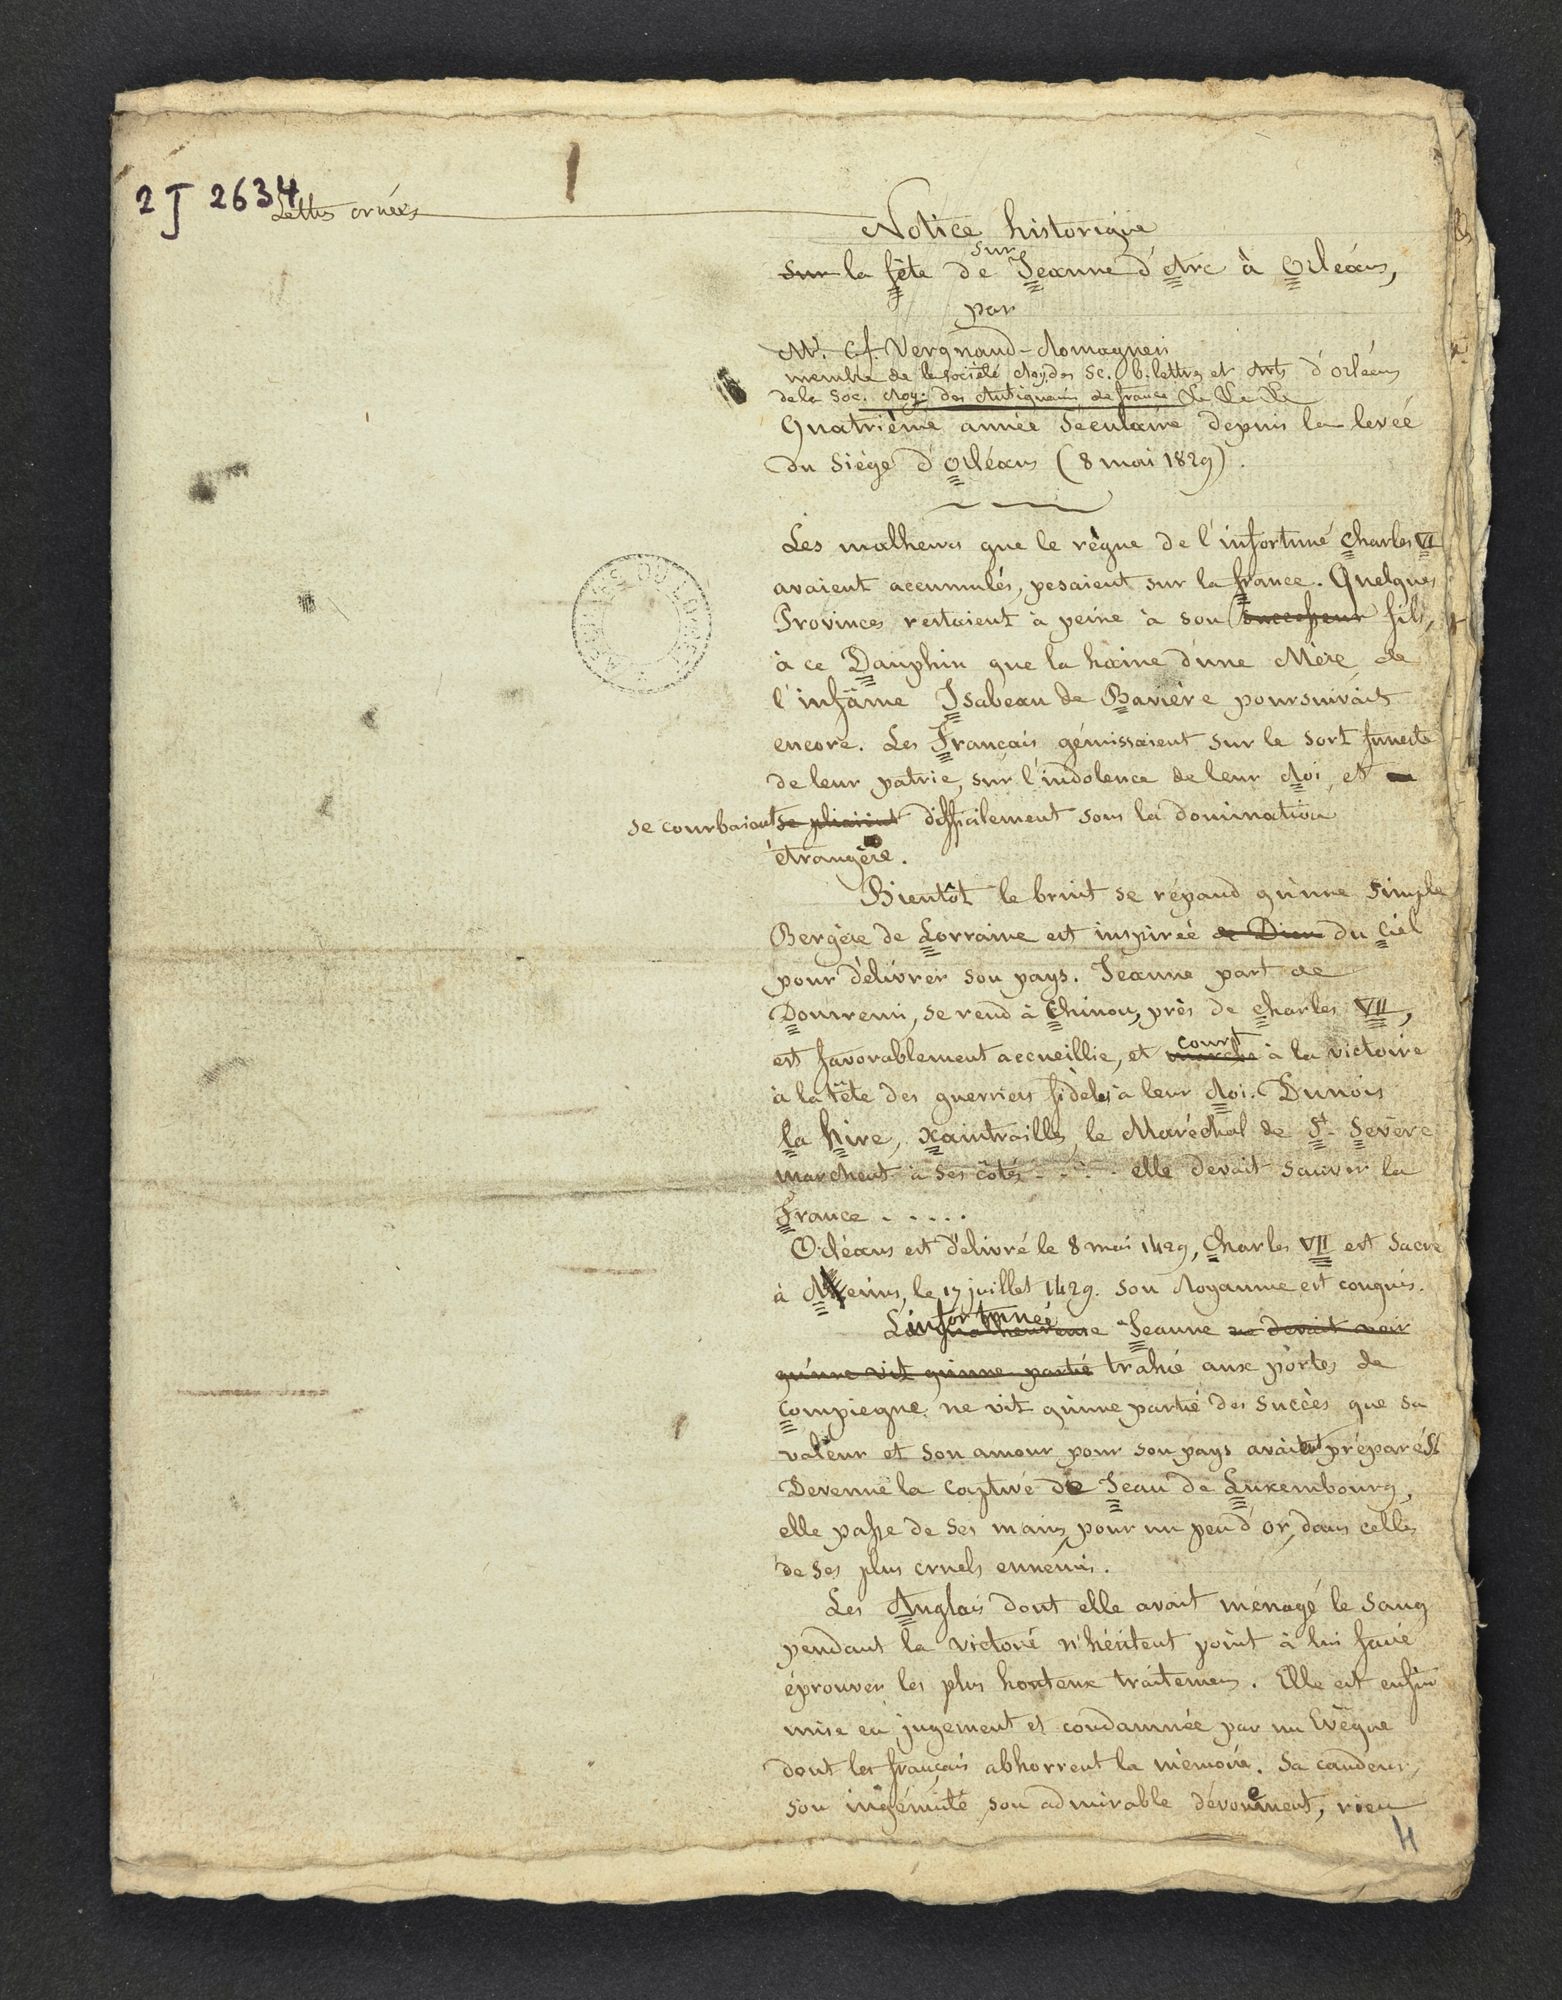 2 J 2634
Lettres ornées
Notice historique
sur
sur la fête de Jeanne d'Arc à Orléans,
par
Mr. C.f. Vergnaud-Romagnesi
membre de la société Roy. des Sc. b. lettres et Arts d'Orléans
de la Soc. Roy. des Antiquaires de france &c &c &c
Quatrième année Séculaire depuis la levée
du Siège d'Orléans (8 mai 1829).
Les malheurs que le règne de l'infortuné Charles VI
avaient accumulés, pesaient sur la france. Quelques
Provinces restaient à peine à son successeur fils,
à ce Dauphin que la haine d'une Mère de
l'infâme Isabeau de Bavière poursuivait
encore. Les Français gémissaient sur le sort funeste
de leur patrie, sur l'indolence de leur Roi, et
se courbaient se pliaient difficilement sous la domination
étrangère.
Bientôt le bruit se répand qu'une simple
Bergère de Lorraine est inspirée de Dieu du Ciel
pour délivrer son pays. Jeanne part de
Domremi, se rend à Chinon, près de Charles VII,
court
est favorablement accueillie, et marche à la victoire
à la tête des guerriers fidèles à leur Roi. Dunois
la hire, xaintrailles, le Maréchal de St. Sevère
marchent à ses côtés . . . . elle devait sauver la
France . . . . .
Orléans est délivré le 8 mai 1429, Charles VII est Sacré
à Reims, le 17 juillet 1429. Son Royaume est conquis.
L'infortunée
malheureuse Jeanne ne devait voir
qu'une vit qu'une partie trahie aux portes de
Compiegne, ne vit qu'une partie des succès que sa
valeur et son amour pour son pays avaient préparés
Devenue la captive de Jean de Luxembourg,
elle passe de ses mains, pour un peu d'or, dans celles
de ses plus cruels ennemis.
Les Anglais dont elle avait ménagé le sang
pendant la victoire n'hésitent point à lui faire
éprouver les plus honteux traitemens. Elle est enfin
mise en jugement et condamnée par un Evêque
dont les français abhorrent la mémoire. Sa candeur,
son ingénuité, son admirable dévouement, rien
4
ARCHIVES DU LOIRET